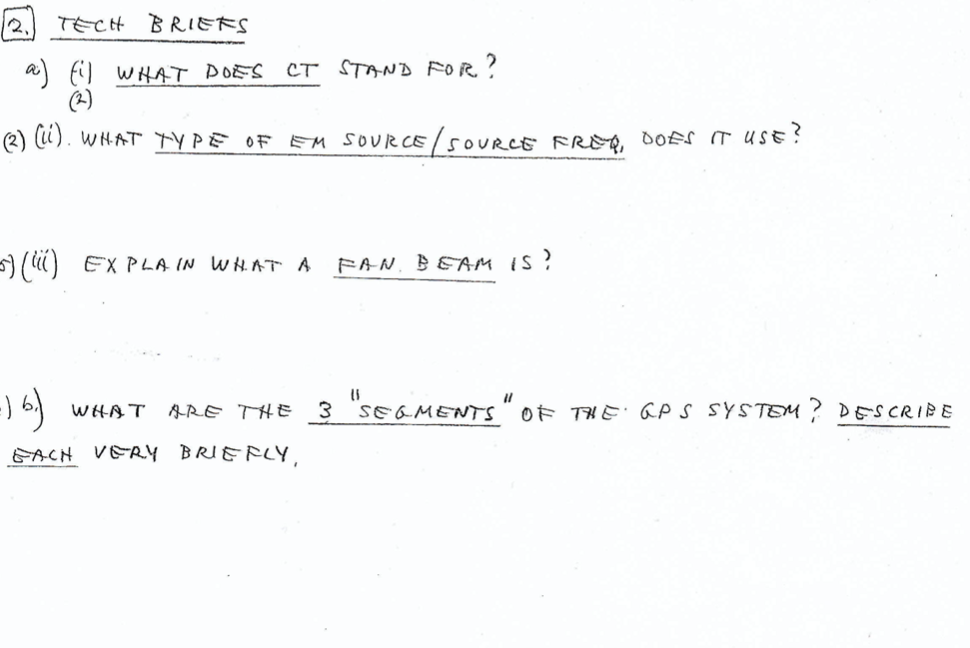 2. TECH BRIEFS
a) (i) WHAT DOES CT STAND FOR?
(2)
(2) (ii). WHAT TYPE OF EM SOURCE/SOURCE FREQ, DOES IT USE?
5) (iii) EXPLAIN WHAT A FAN BEAM IS?
) b.) WHAT ARE THE 3 "SEGMENTS" OF THE GPS SYSTEM? DESCRIBE
EACH VERY BRIEFLY,